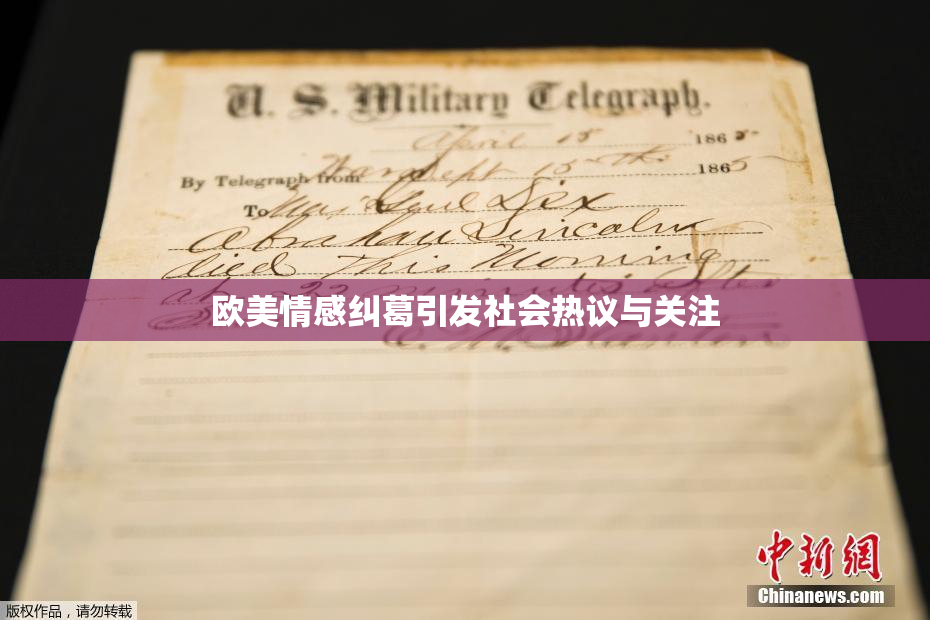 U. S. Military Telegraph.
April 15 1865
By Telegraph from War Dept 15th 1865
To Maj Genl Dix
Abraham Lincoln
died This Morning
at 22 minutes after
欧美情感纠葛引发社会热议与关注
E. M. Stanton
中新网
Chinanews.com
版权作品，请勿转载